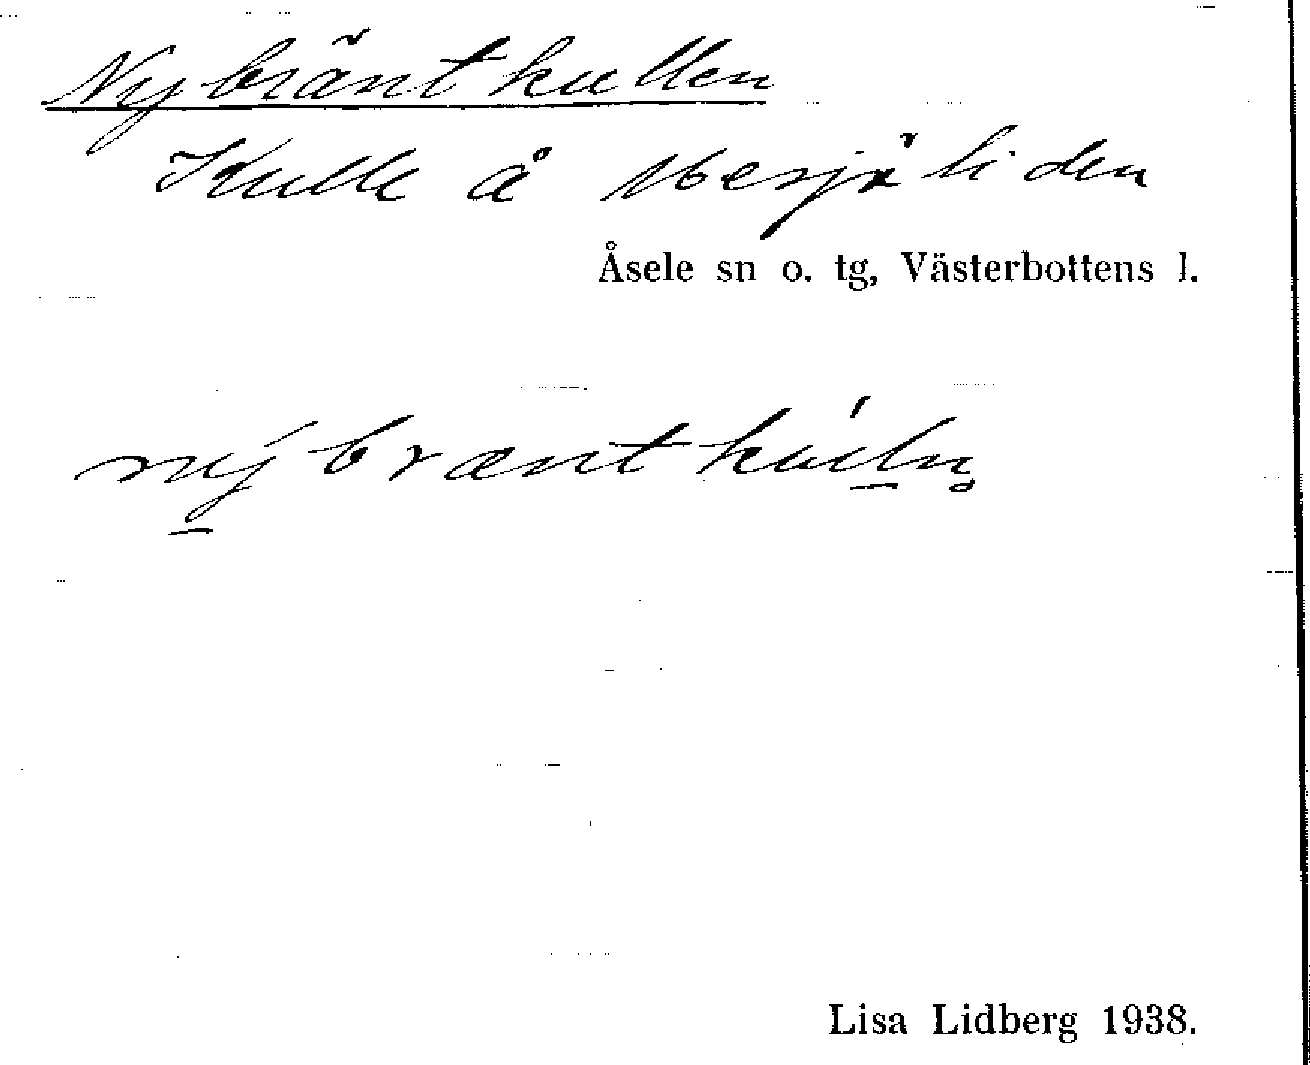 Nybräntkullen
Kulle å
Åsele sn o. tg, Västerbottens l.
nýbræntku̇ln̥
Lisa Lidberg 1938.